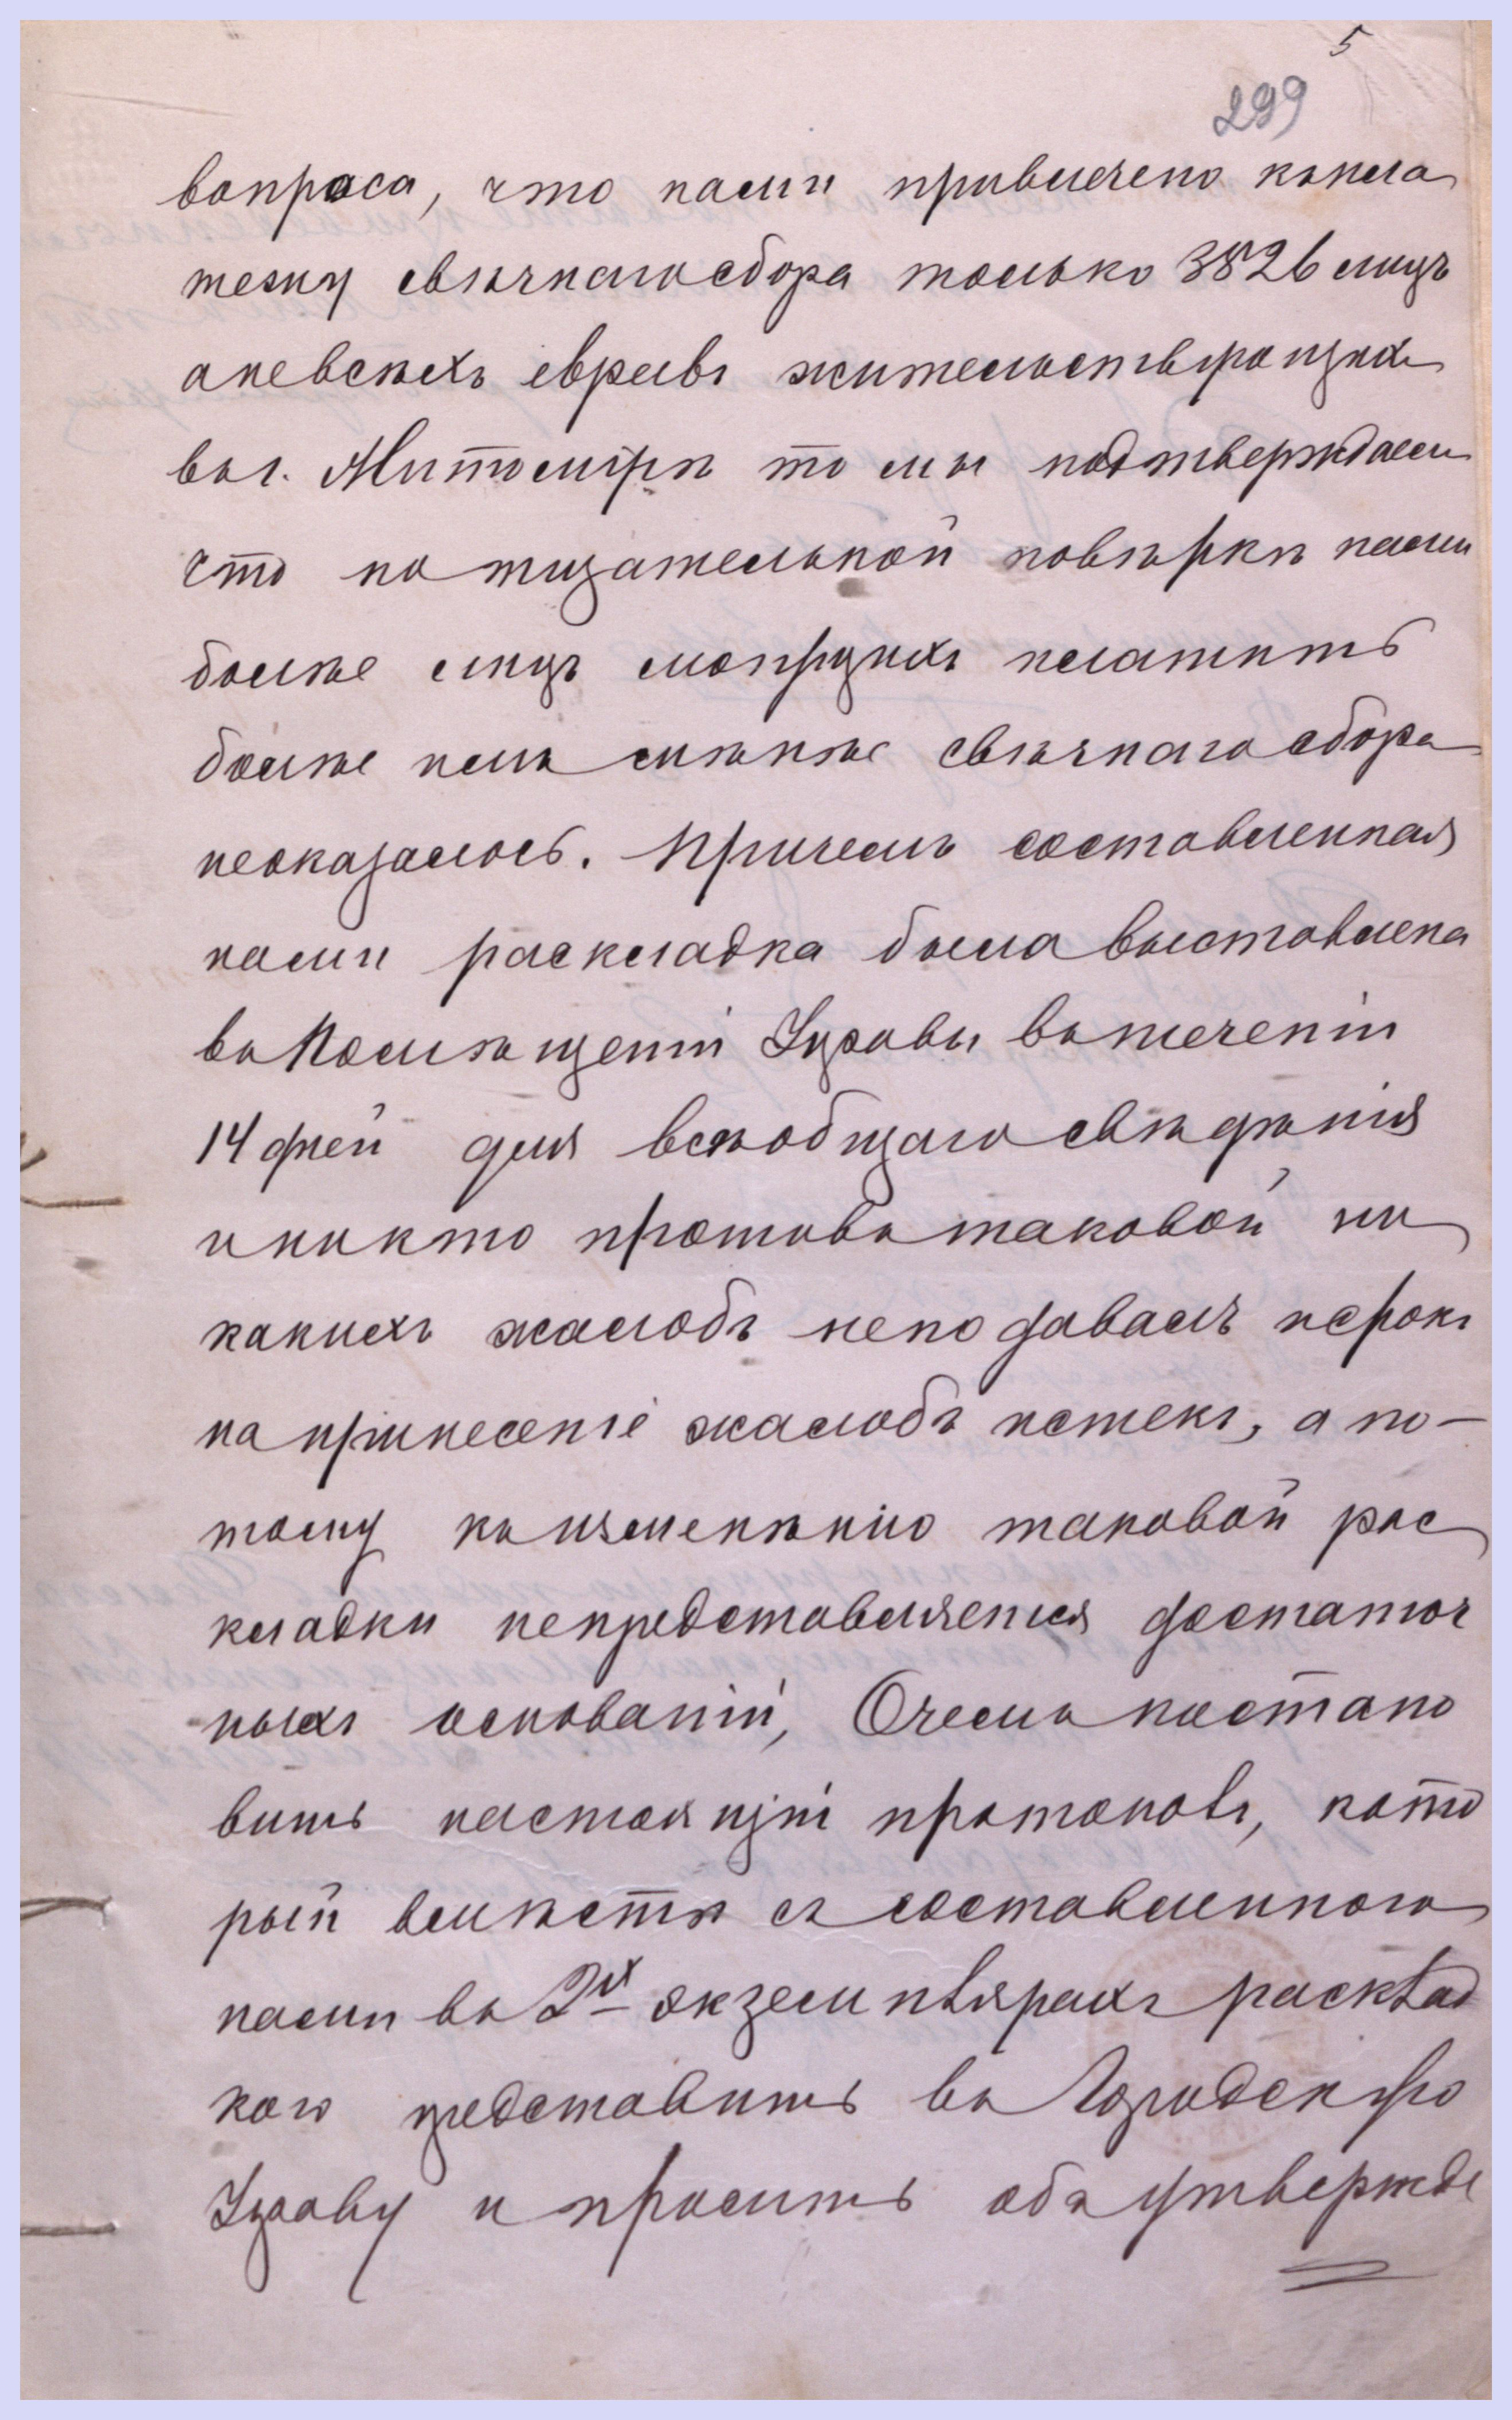 5
299
вопроса, что нами привлечено къ пла
тежу свѣчнаго сбора только 3826 лицъ
а не всѣхъ евреевъ жительствующихъ
въ г. Житомірѣ то мы подтверждаемъ
что по тщательной повѣркѣ нами
болѣе лицъ могущихъ платить
болѣе или менѣе свѣчнаго сбора
неоказалось. Причемъ составленная
нами раскладка была выставлена
въ Помѣщеніи Управы въ теченіи
14 дней для всеобщаго свѣдѣнія
и никто противъ таковой ни
какихъ жалобъ неподавалъ и срокъ
на принесеніе жалобъ истекъ, а по-
тому къ измененѣнію таковой рас
кладки непредставляется достаточ
ныхъ основаній, О чемъ постано
вить настоящій протоколъ, кото
рый вмѣстѣ съ составленною
нами въ 2хъ экземплярахъ расклад
кою представить въ Городскую
Управу и просить объ утвержде